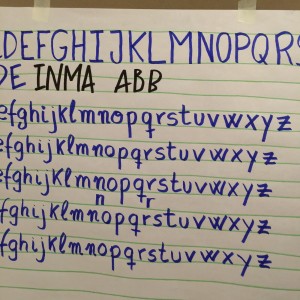 DEFGHIJKLMNOPQRS
DE INMA ABB
efghijklmnopqrstuvwxyz
efghijklmnopqrstuvwxyz
efghijklmnopqrstuvwxyz
n r
fghijklmnopqrstuvwxyz
fghijklmnopqrstuvwxyz